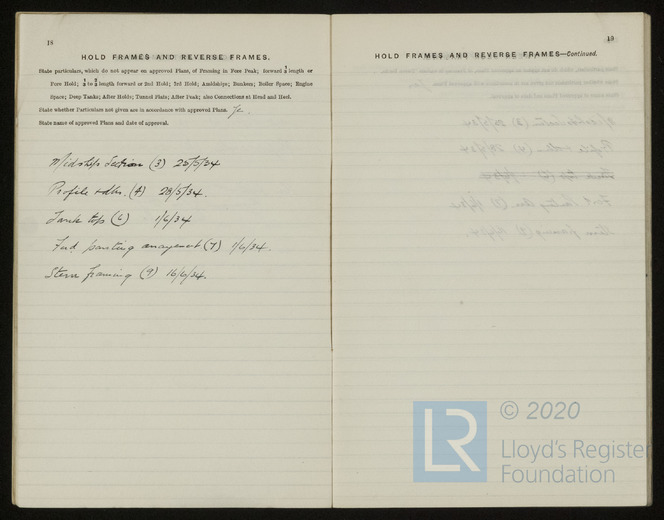 18
HOLD FRAMES AND REVERSE FRAMES.
State particulars, which do not appear on approved Plans, of Framing in Fore Peak; forward ¼ length or
Fore Hold; ¼ to ⅜ length forward or 2nd Hold; 3rd Hold; Amidships; Bunkers; Boiler Space; Engine
Space; Deep Tanks; After Holds; Tunnel Flats; After Peak; also Connections at Head and Heel.
State whether Particulars not given are in accordance with approved Plans.
State name of approved Plans and date of approval.
Midships Section (3) 25/5/34
Profile & dks. (4) 28/5/34.
Tank top (6) 1/6/34
Fwd. panting arrangement (7) 1/6/34.
Stern framing (9) 16/6/34.
19
HOLD FRAMES AND REVERSE FRAMES—Continued.
LR
© 2020
Lloyd's Register
Foundation